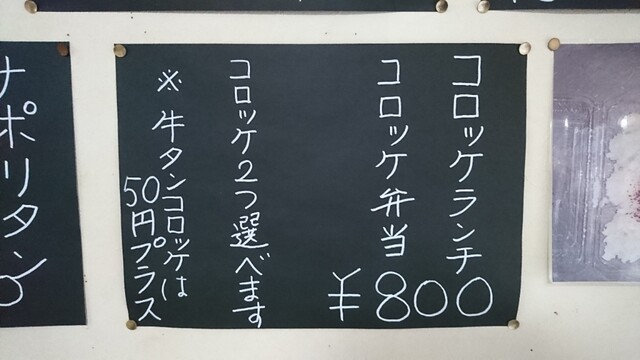 コロッケランチ
コロッケ弁当
¥800
コロッケ2つ選べます
※牛タンコロッケは
50円プラス
ナポリタン